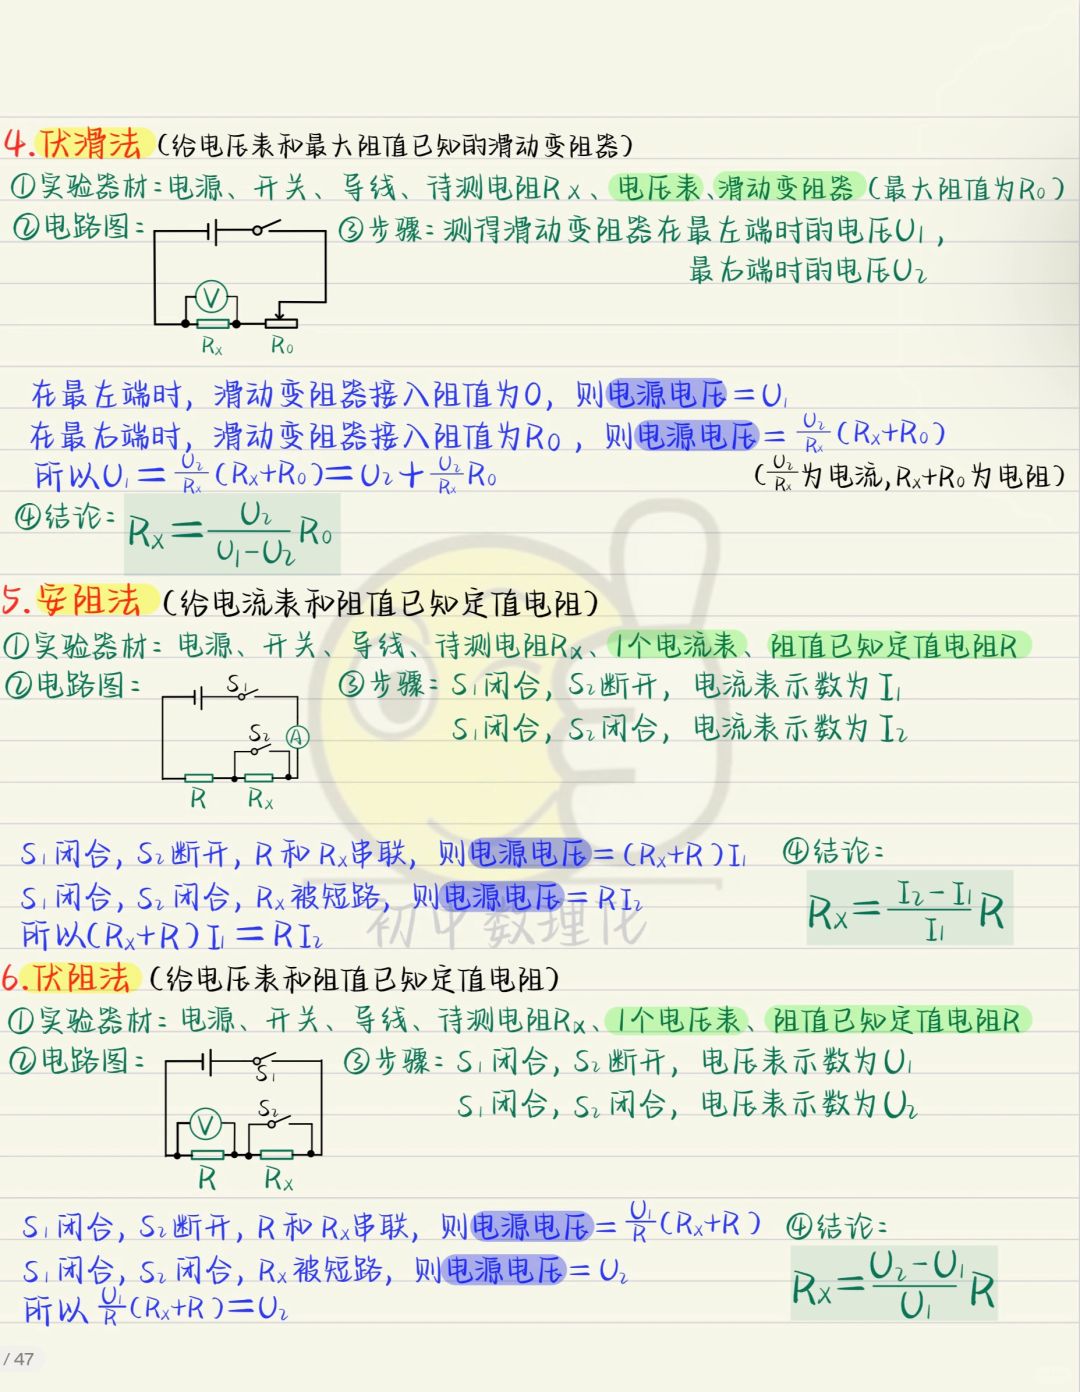 4.伏滑法(给电压表和最大阻值已知的滑动变阻器)
①实验器材:电源、开关、导线、待测电阻Rx、电压表、滑动变阻器(最大阻值为R₀)
②电路图:
V
Rx R₀
③步骤:测得滑动变阻器在最左端时的电压U₁,
最右端时的电压U₂
在最左端时,滑动变阻器接入阻值为0,则电源电压=U₁
在最右端时,滑动变阻器接入阻值为R₀,则电源电压=U₂/Rx(Rx+R₀)
所以U₁=U₂/Rx(Rx+R₀)=U₂+U₂/Rx R₀
(U₂/Rx为电流,Rx+R₀为电阻)
④结论:Rx=U₂/(U₁-U₂) R₀
5.安阻法(给电流表和阻值已知定值电阻)
①实验器材:电源、开关、导线、待测电阻Rx、1个电流表、阻值已知定值电阻R
②电路图:
S₁
S₂ A
R Rx
③步骤:S₁闭合,S₂断开,电流表示数为I₁
S₁闭合,S₂闭合,电流表示数为I₂
S₁闭合,S₂断开,R和Rx串联,则电源电压=(Rx+R)I₁
S₁闭合,S₂闭合,Rx被短路,则电源电压=RI₂
所以(Rx+R)I₁=RI₂
④结论:
Rx=(I₂-I₁)/I₁ R
初中数理化
6.伏阻法(给电压表和阻值已知定值电阻)
①实验器材:电源、开关、导线、待测电阻Rx、1个电压表、阻值已知定值电阻R
②电路图:
S₁
V S₂
R Rx
③步骤:S₁闭合,S₂断开,电压表示数为U₁
S₁闭合,S₂闭合,电压表示数为U₂
S₁闭合,S₂断开,R和Rx串联,则电源电压=U₁/R(Rx+R)
S₁闭合,S₂闭合,Rx被短路,则电源电压=U₂
所以U₁/R(Rx+R)=U₂
④结论:
Rx=(U₂-U₁)/U₁ R
/ 47